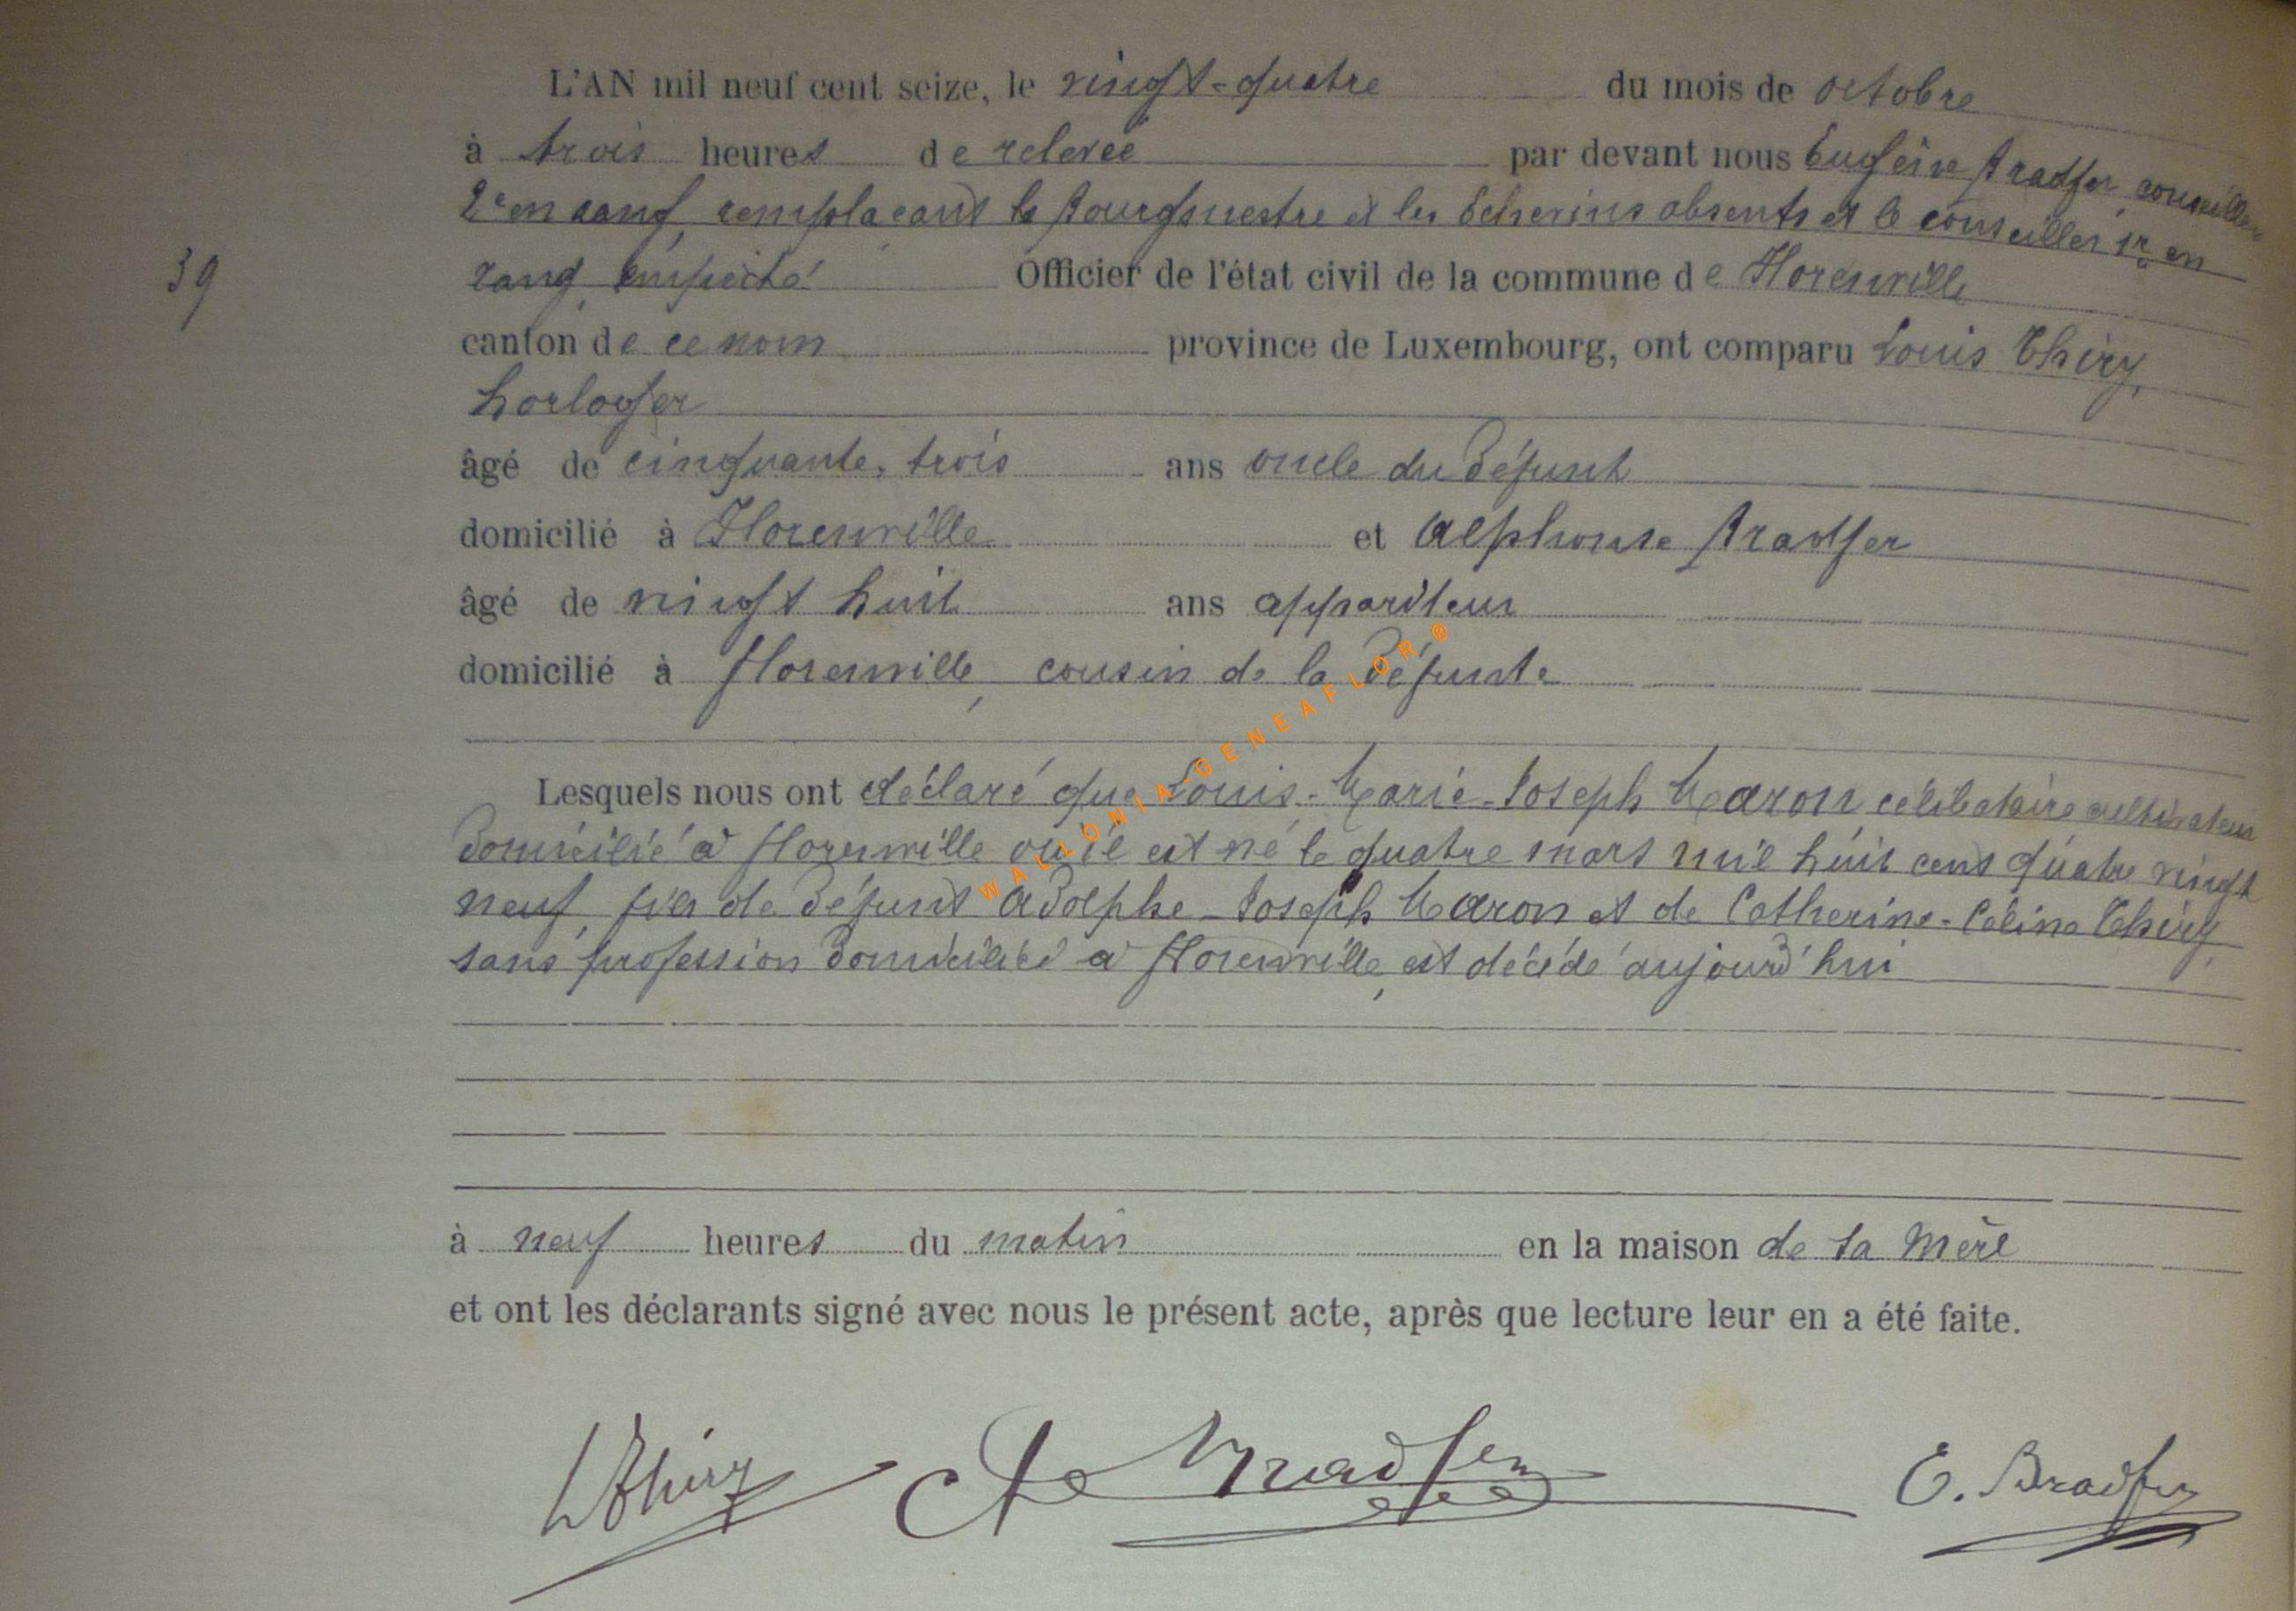 L'AN mil neuf cent seize, le vingt-quatre du mois de octobre
à trois heures de relevée par devant nous Eugène Bradfer, conseiller
2e en rang, remplaçant le Bourgmestre et les Echevins absents et le conseiller 1r en
39
rang, empêché Officier de l'état civil de la commune de Florenville
canton de ce nom province de Luxembourg, ont comparu Louis Thiry,
horloger
âgé de cinquante-trois ans oncle du défunt
domicilié à Florenville et Alphonse Bradfer
âgé de vingt huit ans appariteur
domicilié à Florenville, cousin de la défunte
Lesquels nous ont déclaré que Louis-Marie-Joseph Maron célibataire cultivateur
domicilié à Florenville où il est né le quatre mars mil huit cent quatre vingt
neuf, fils de défunt Adolphe-Joseph Maron et de Catherine-Céline Thiry,
sans profession domiciliée à Florenville, est décédé aujourd'hui
WALLONIA-GENEAFLOR ®
à neuf heures du matin en la maison de sa mère
et ont les déclarants signé avec nous le présent acte, après que lecture leur en a été faite.
L Thiry A Bradfer E. Bradfer